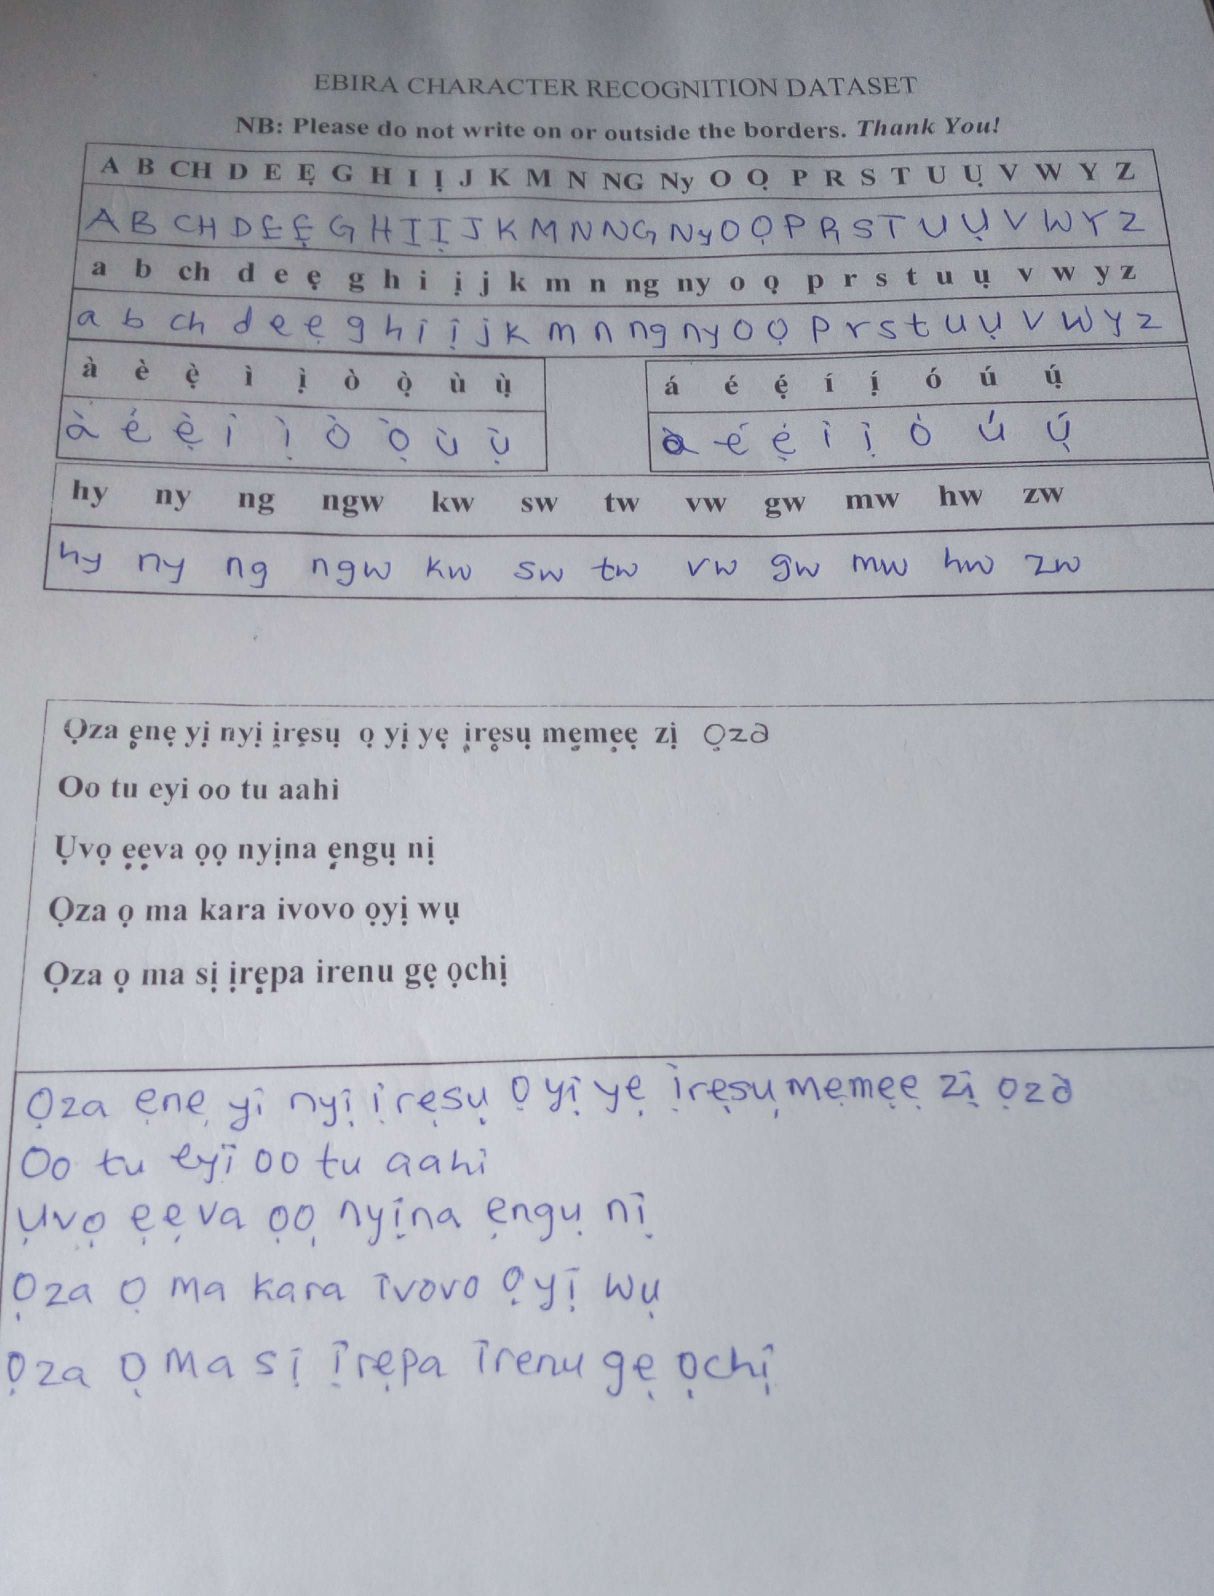 EBIRA CHARACTER RECOGNITION DATASET
NB: Please do not write on or outside the borders. Thank You!
A B CH D E Ẹ G H I Ị J K M N NG Ny O Ọ P R S T U Ụ V W Y Z
A B CH D E Ẹ G H I Ị J K M N NG Ny O Ọ P R S T U Ụ V W Y Z
a b ch d e ẹ g h i ị j k m n ng ny o ọ p r s t u ụ v w y z
a b ch d e ẹ g h i ị j k m n ng ny o ọ p r s t u ụ v w y z
à è ẹ̀ ì ị̀ ò ọ̀ ù ụ̀ á é ẹ́ í ị́ ó ú ụ́
à é ẹ̀ ì ị̀ ò ọ̀ ù ụ̀ à é ẹ́ ì ị̀ ò ú ụ́
hy ny ng ngw kw sw tw vw gw mw hw zw
hy ny ng ngw kw sw tw vw gw mw hw zw
Ọza ẹnẹ yị nyị ịrẹsụ ọ yị yẹ ịrẹsụ mẹmẹẹ zị Ọza
Oo tu eyi oo tu aahi
Ụvọ ẹẹva ọọ nyịna ẹngụ nị
Ọza ọ ma kara ivovo ọyị wụ
Ọza ọ ma sị ịrẹpa irenu gẹ ọchị
Ọza ẹnẹ yi nyị ịrẹsụ ọ yị yẹ ịrẹsụ mẹmẹẹ zị ọza
Oo tu eyi oo tu aahi
Ụvọ ẹẹva ọọ nyịna ẹngụ nị
Ọza ọ ma kara ivovo ọyị wụ
Ọza ọ ma sị ịrẹpa irenu gẹ ọchị